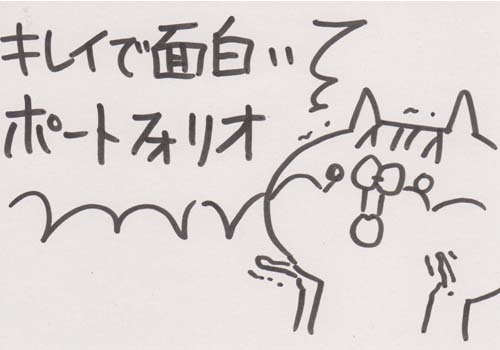 キレイで面白い
ポートフォリオ